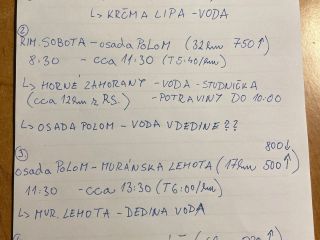 ↳ KRČMA LIPA - VODA
②
RIM. SOBOTA - osada POLOM (32km 750↑)
8:30 - cca 11:30 (T5:40/km)
↳ HORNÉ ZAHORANY - VODA - STUDNIČKA
(cca 12km z RS.) - POTRAVINY DO 10:00
↳ OSADA POLOM - VODA V DEDINE??
800↓
③
osada POLOM - MURÁNSKA LEHOTA (17km 500↑)
11:30 - cca 13:30 (T6:00/km)
↳ MUR. LEHOTA - DEDINA VODA